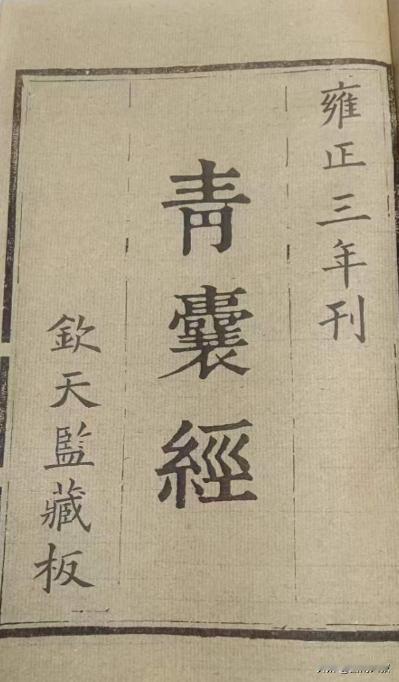 雍正三年刊
青囊經
欽天監藏板